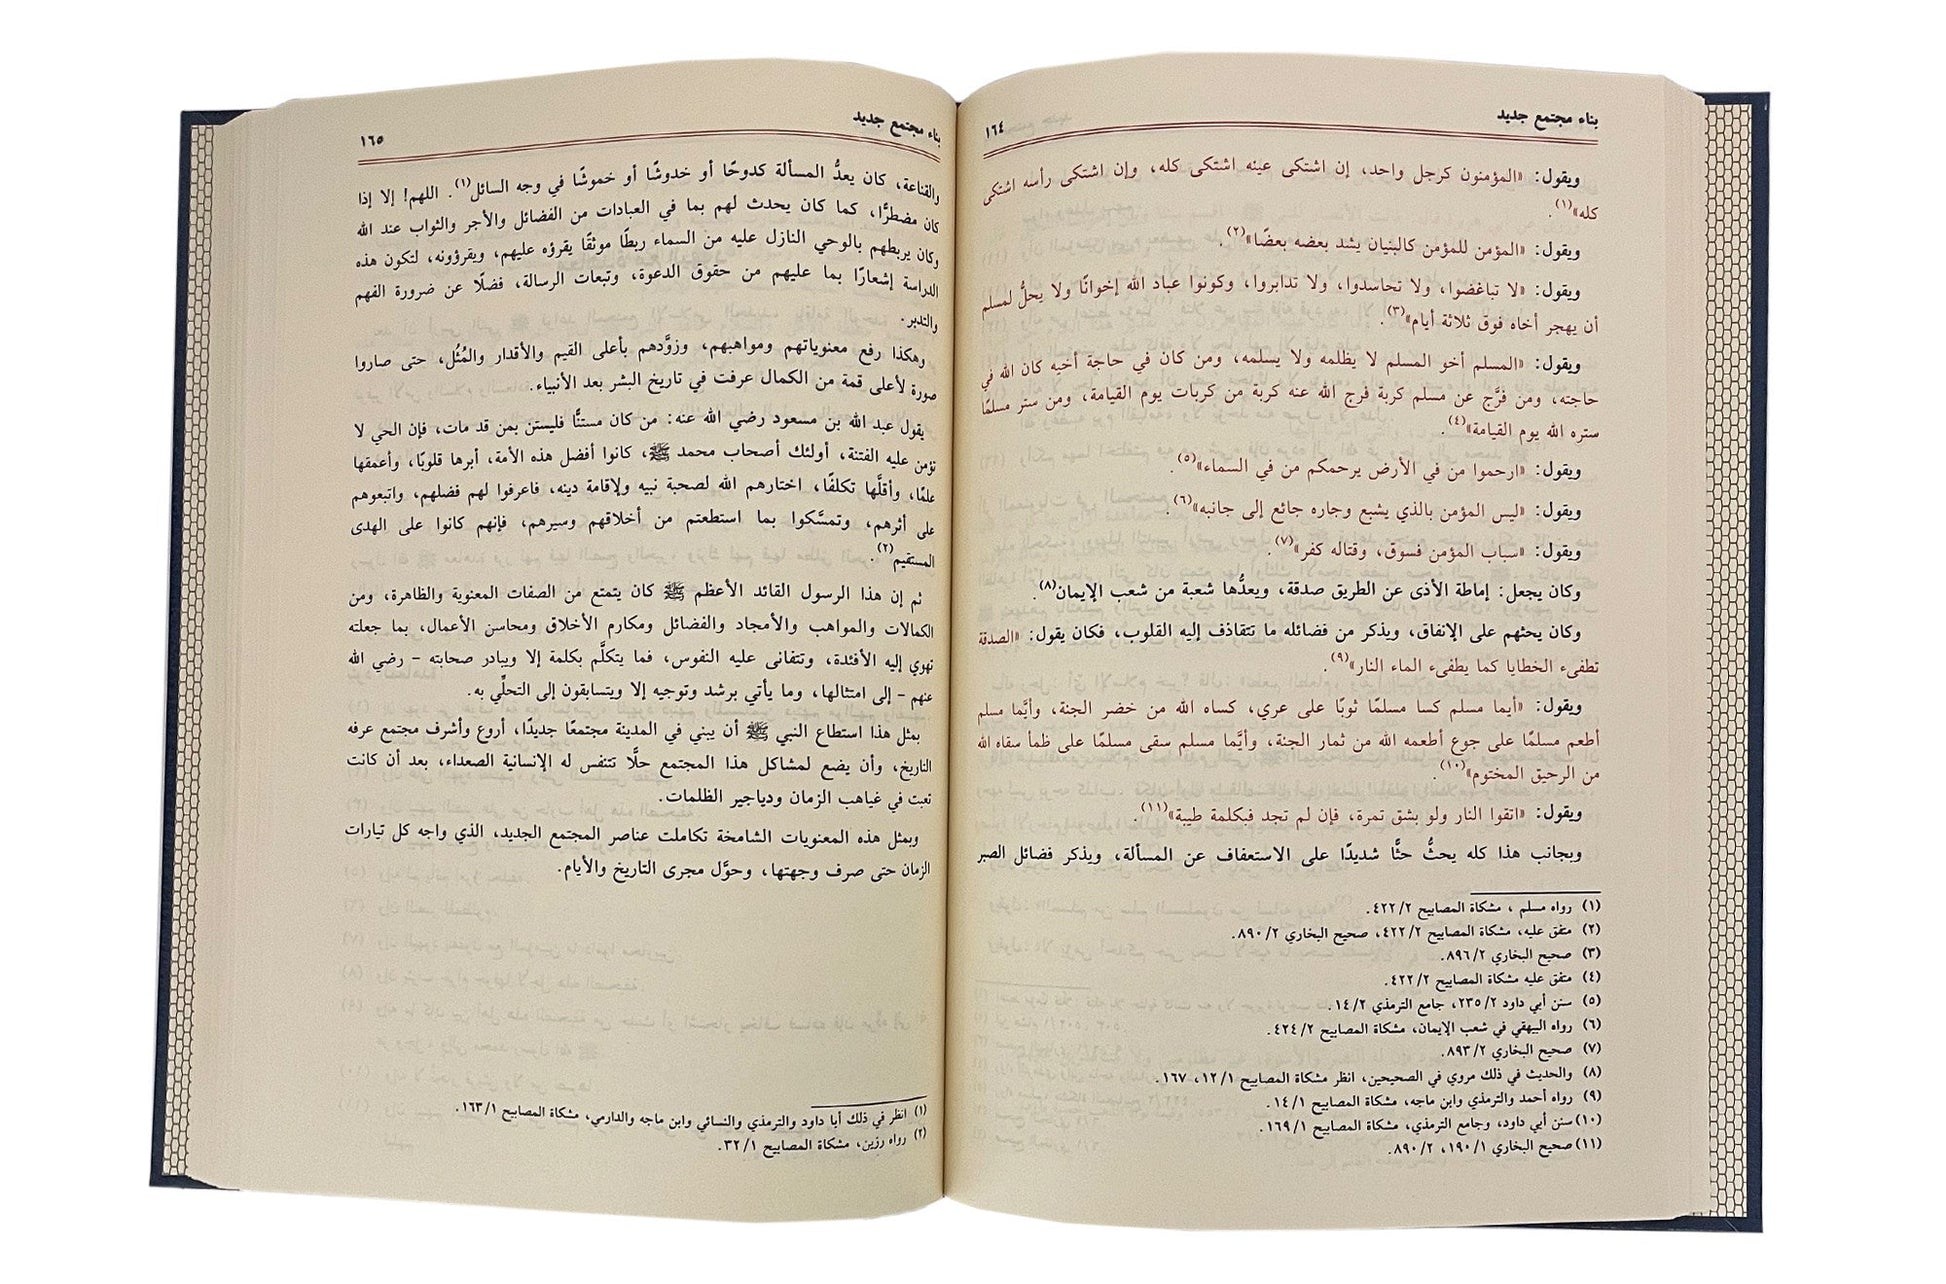 بناء مجتمع جديد
١٦٤
ويقول: «المؤمنون كرجل واحد، إن اشتكى عينه اشتكى كله، وإن اشتكى رأسه اشتكى
كله»(١).
ويقول: «المؤمن للمؤمن كالبنيان يشد بعضه بعضًا»(٢).
ويقول: «لا تباغضوا، ولا تحاسدوا، ولا تدابروا، وكونوا عباد الله إخوانًا ولا يحلُّ لمسلم
أن يهجر أخاه فوق ثلاثة أيام»(٣).
ويقول: «المسلم أخو المسلم لا يظلمه ولا يسلمه، ومن كان في حاجة أخيه كان الله في
حاجته، ومن فرَّج عن مسلم كربة فرج الله عنه كربة من كربات يوم القيامة، ومن ستر مسلمًا
ستره الله يوم القيامة»(٤).
ويقول: «ارحموا من في الأرض يرحمكم من في السماء»(٥).
ويقول: «ليس المؤمن بالذي يشبع وجاره جائع إلى جانبه»(٦).
ويقول: «سباب المؤمن فسوق، وقتاله كفر»(٧).
وكان يجعل: إماطة الأذى عن الطريق صدقة، ويعدُّها شعبة من شعب الإيمان(٨).
وكان يحثهم على الإنفاق، ويذكر من فضائله ما تتقاذف إليه القلوب، فكان يقول: «الصدقة
تطفىء الخطايا كما يطفىء الماء النار»(٩).
ويقول: «أيما مسلم كسا مسلمًا ثوبًا على عري، كساه الله من خضر الجنة، وأيَّما مسلم
أطعم مسلمًا على جوع أطعمه الله من ثمار الجنة، وأيَّما مسلم سقى مسلمًا على ظمأ سقاه الله
من الرحيق المختوم»(١٠).
ويقول: «اتقوا النار ولو بشق تمرة، فإن لم تجد فبكلمة طيبة»(١١).
وبجانب هذا كله يحثُّ حثًّا شديدًا على الاستعفاف عن المسألة، ويذكر فضائل الصبر
(١) رواه مسلم ، مشكاة المصابيح ٤٢٢/٢.
(٢) متفق عليه، مشكاة المصابيح ٤٢٢/٢، صحيح البخاري ٨٩٠/٢.
(٣) صحيح البخاري ٨٩٦/٢.
(٤) متفق عليه مشكاة المصابيح ٤٢٢/٢.
(٥) سنن أبي داود ٢٣٥/٢، جامع الترمذي ١٤/٢.
(٦) رواه البيهقي في شعب الإيمان، مشكاة المصابيح ٤٢٤/٢.
(٧) صحيح البخاري ٨٩٣/٢.
(٨) والحديث في ذلك مروي في الصحيحين، انظر مشكاة المصابيح ١٢/١، ١٦٧.
(٩) رواه أحمد والترمذي وابن ماجه، مشكاة المصابيح ١٤/١.
(١٠) سنن أبي داود، وجامع الترمذي، مشكاة المصابيح ١٦٩/١.
(١١) صحيح البخاري ١٩٠/١، ٨٩٠/٢.
بناء مجتمع جديد
١٦٥
والقناعة، كان يعدُّ المسألة كدوحًا أو خدوشًا أو خموشًا في وجه السائل(١). اللهم! إلا إذا
كان مضطرًّا، كما كان يحدث لهم بما في العبادات من الفضائل والأجر والثواب عند الله
وكان يربطهم بالوحي النازل عليه من السماء ربطًا موثقًا يقرؤه عليهم، ويقرؤونه، لتكون هذه
الدراسة إشعارًا بما عليهم من حقوق الدعوة، وتبعات الرسالة، فضلًا عن ضرورة الفهم
والتدبر.
وهكذا رفع معنوياتهم ومواهبهم، وزوَّدهم بأعلى القيم والأقدار والمُثُل، حتى صاروا
صورة لأعلى قمة من الكمال عرفت في تاريخ البشر بعد الأنبياء.
يقول عبد الله بن مسعود رضي الله عنه: من كان مستنًّا فليستن بمن قد مات، فإن الحي لا
تؤمن عليه الفتنة، أولئك أصحاب محمد ﷺ، كانوا أفضل هذه الأمة، أبرها قلوبًا، وأعمقها
علمًا، وأقلَّها تكلفًا، اختارهم الله لصحبة نبيه ولإقامة دينه، فاعرفوا لهم فضلهم، واتبعوهم
على أثرهم، وتمسَّكوا بما استطعتم من أخلاقهم وسيرهم، فإنهم كانوا على الهدى
المستقيم(٢).
ثم إن هذا الرسول القائد الأعظم ﷺ كان يتمتع من الصفات المعنوية والظاهرة، ومن
الكمالات والمواهب والأمجاد والفضائل ومكارم الأخلاق ومحاسن الأعمال، بما جعلته
تهوي إليه الأفئدة، وتتفانى عليه النفوس، فما يتكلَّم بكلمة إلا ويبادر صحابته - رضي الله
عنهم - إلى امتثالها، وما يأتي برشد وتوجيه إلا ويتسابقون إلى التحلِّي به.
بمثل هذا استطاع النبي ﷺ أن يبني في المدينة مجتمعًا جديدًا، أروع وأشرف مجتمع عرفه
التاريخ، وأن يضع لمشاكل هذا المجتمع حلًّا تتنفس له الإنسانية الصعداء، بعد أن كانت
تعبت في غياهب الزمان ودياجير الظلمات.
وبمثل هذه المعنويات الشامخة تكاملت عناصر المجتمع الجديد، الذي واجه كل تيارات
الزمان حتى صرف وجهتها، وحوَّل مجرى التاريخ والأيام.
(١) انظر في ذلك أبا داود والترمذي والنسائي وابن ماجه والدارمي، مشكاة المصابيح ١٦٣/١.
(٢) رواه رزين، مشكاة المصابيح ٣٢/١.